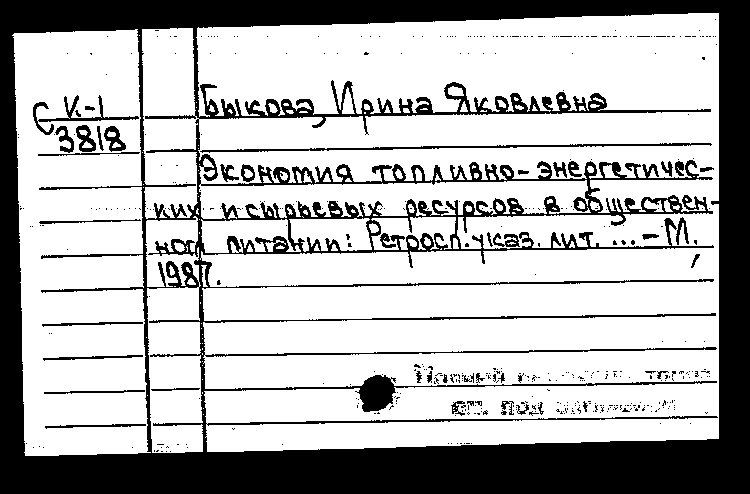 С К-1
3818
Быкова, Ирина Яковлевна
Экономия топливно-энергетичес-
ких и сырьевых ресурсов в обществен-
ном питании: Ретросп. указ. лит. ... - М.,
1987.
Полный томов
см. под